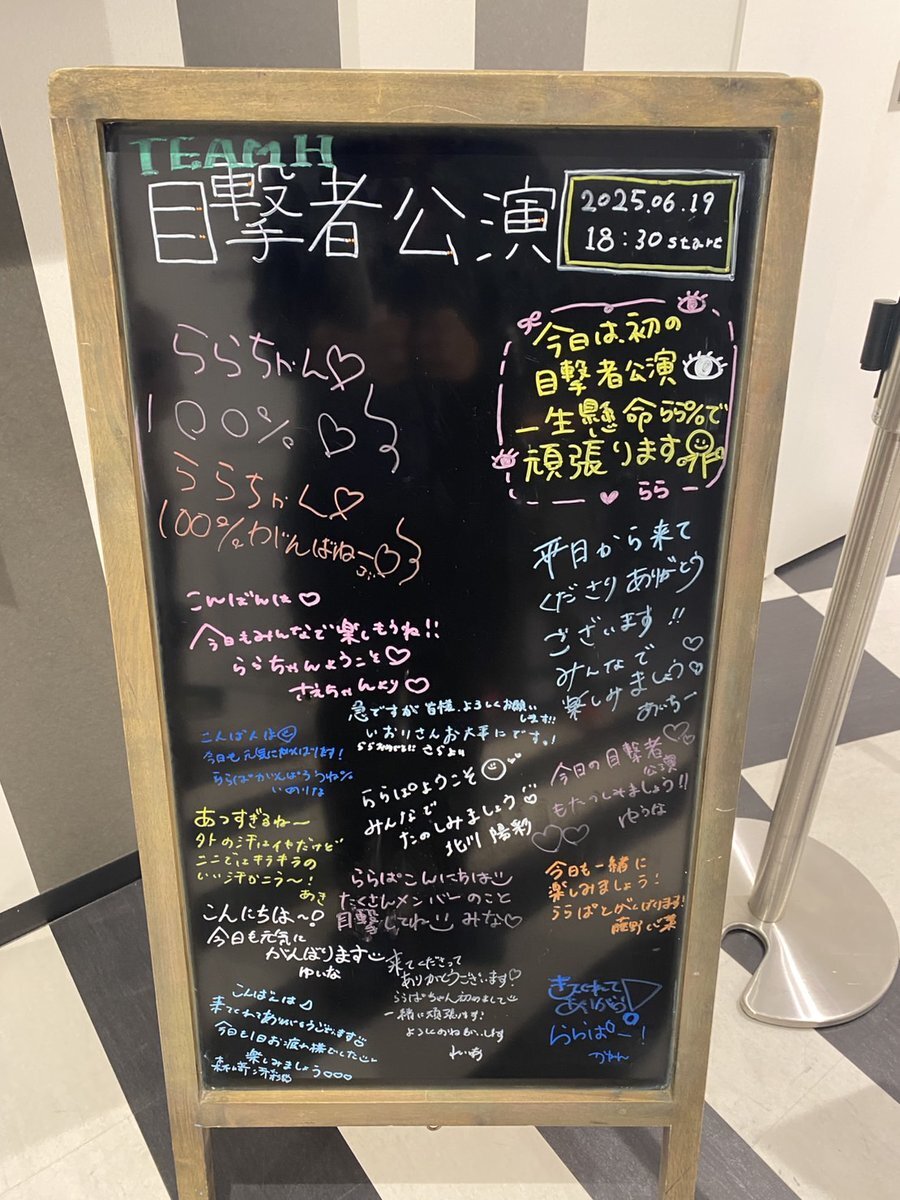 TEAM H
目撃者公演
2025.06.19
18:30 start
今日は初の
目撃者公演
一生懸命らら%で
頑張ります
らら
ららちゃん♡
100%♡
ららちゃん♡
100%がんばねー♡
平日から来て
くださりありがとう
ございます!!
みんなで
楽しみましょう
あいちー
こんばんは♡
今日もみんなで楽しもうね!!
ららちゃんようこそ♡
さえちゃんより♡
急ですが皆様よろしくお願い
します!!
いおりさんお大事にです。!
さらより
こんばんは
今日も元気にがんばります!
ららぱがんばろうね%
いのりな
ららぱようこそ
みんなで
たのしみましょう
北川 陽彩
今日の目撃者
公演
もたのしみましょう!!
ゆうな
あつすぎるねー
外の汗はイヤだけど
ここではキラキラの
いい汗かこう〜!
あき
ららぱこんにちは
たくさんメンバーのこと
目撃してね みな♡
今日も一緒に
楽しみましょう!
ららぱとがんばります!
こんにちは〜
今日も元気に
がんばります
ゆいな
来てくださって
ありがとうございます♡
ららぱちゃん初めまして
一緒に頑張ります!
きてくれて
ありがとう!
ららぱー!
かれん
こんばんは
来てくれてありがとうございます
今日も1日お疲れ様でした
楽しみましょう♡♡♡